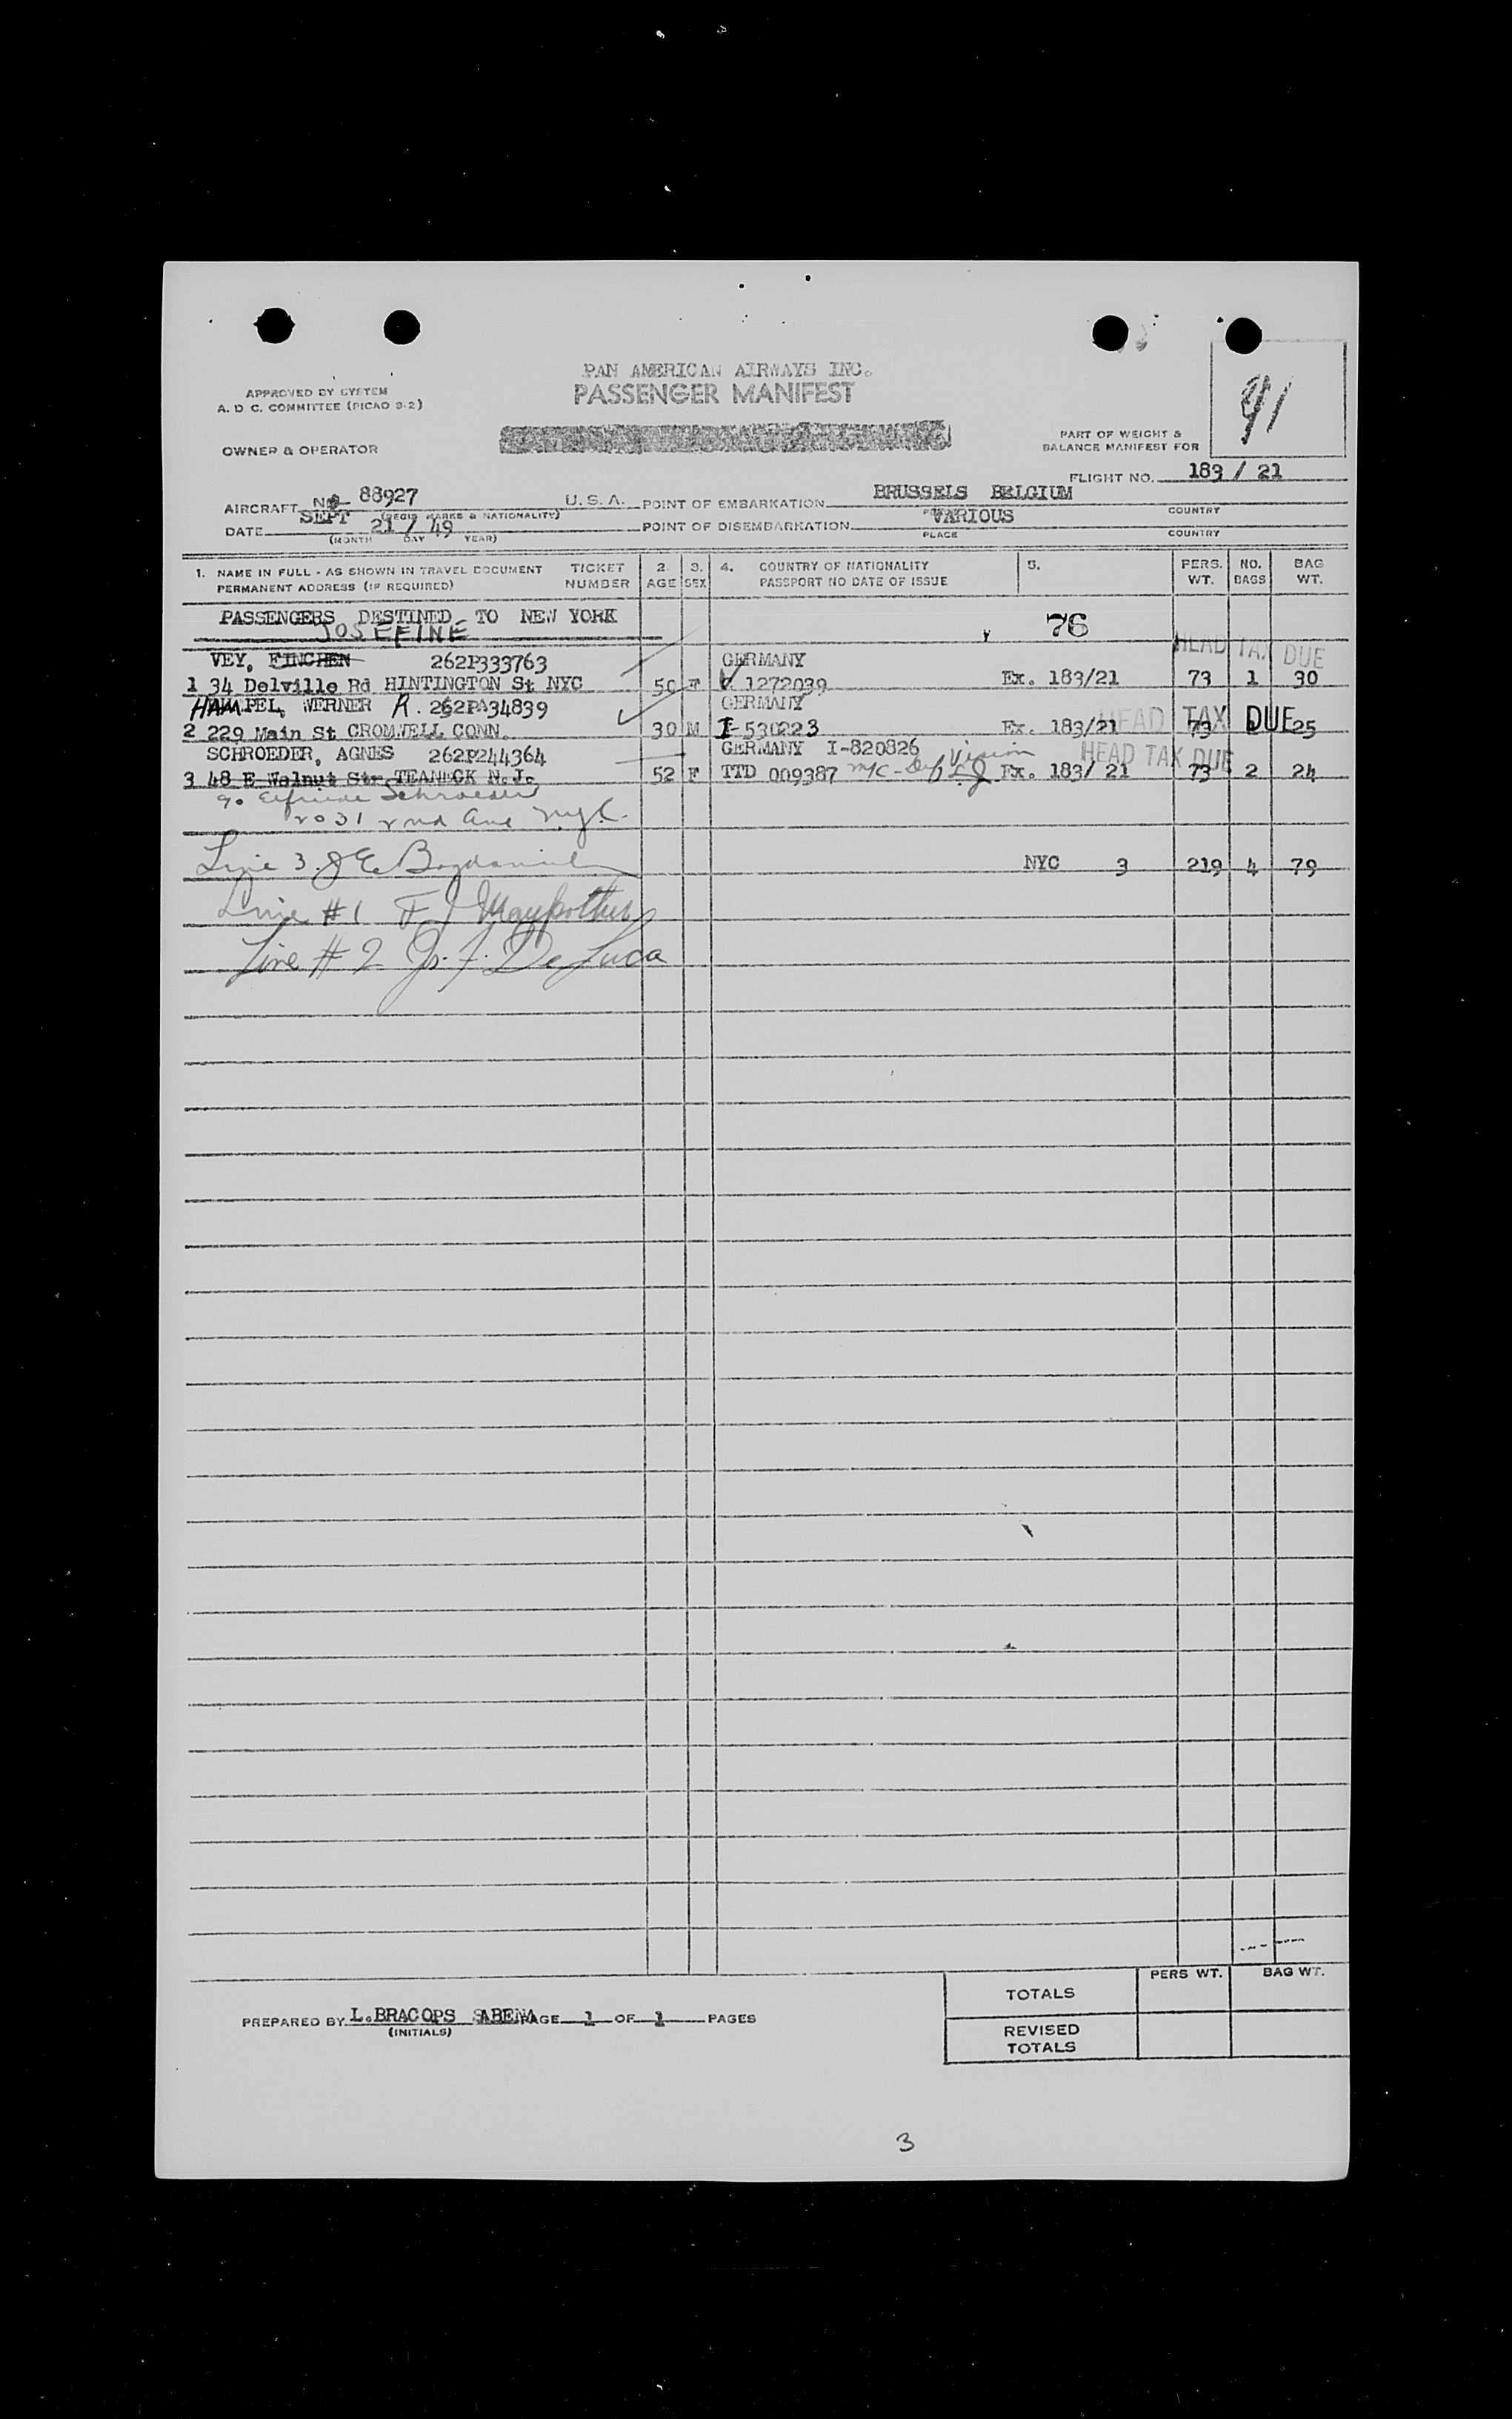 PAN AMERICAN AIRWAYS INC.
PASSENGER MANIFEST
APPROVED BY SYSTEM
A. D. C. COMMITTEE (PICAO 9-2)
OWNER & OPERATOR
91
PART OF WEIGHT &
BALANCE MANIFEST FOR
FLIGHT NO. 183 / 21
AIRCRAFT 88927 U.S.A. POINT OF EMBARKATION BRUSSELS BELGIUM
(REGIS MARKS & NATIONALITY) COUNTRY
DATE SEPT 21 / 49 POINT OF DISEMBARKATION VARIOUS
(MONTH DAY YEAR) PLACE COUNTRY
1. NAME IN FULL - AS SHOWN IN TRAVEL DOCUMENT TICKET 2. 3. 4. COUNTRY OF NATIONALITY 5. PERS. NO. BAG
PERMANENT ADDRESS (IF REQUIRED) NUMBER AGE SEX PASSPORT NO DATE OF ISSUE WT. BAGS WT.
PASSENGERS DESTINED TO NEW YORK 76
JOSEFINE HEAD TAX DUE
VEY, FINCHEN 262P333763 GERMANY
1 34 Delville Rd HINTINGTON St NYC 50 F 1272039 Ex. 183/21 73 1 30
HAMPEL, WERNER R. 262PA34839 GERMANY HEAD TAX DUE
2 229 Main St CROMWELL CONN. 30 M I-530223 Ex. 183/21 73 1 25
SCHROEDER, AGNES 262P244364 GERMANY I-820826 Vision HEAD TAX DUE
3 48 E Walnut Str TEANECK N.J. 52 F TTD 009387 Ex. 183/ 21 73 2 24
c/o Elfriede Schroeder
2031 2nd Ave NYC.
Line 3. NYC 3 219 4 79
Line #1 F J
Line # 2 De Luca
PREPARED BY L.BRACOPS SABENA PAGE 1 OF 1 PAGES
(INITIALS)
PERS WT. BAG WT.
TOTALS
REVISED
TOTALS
3